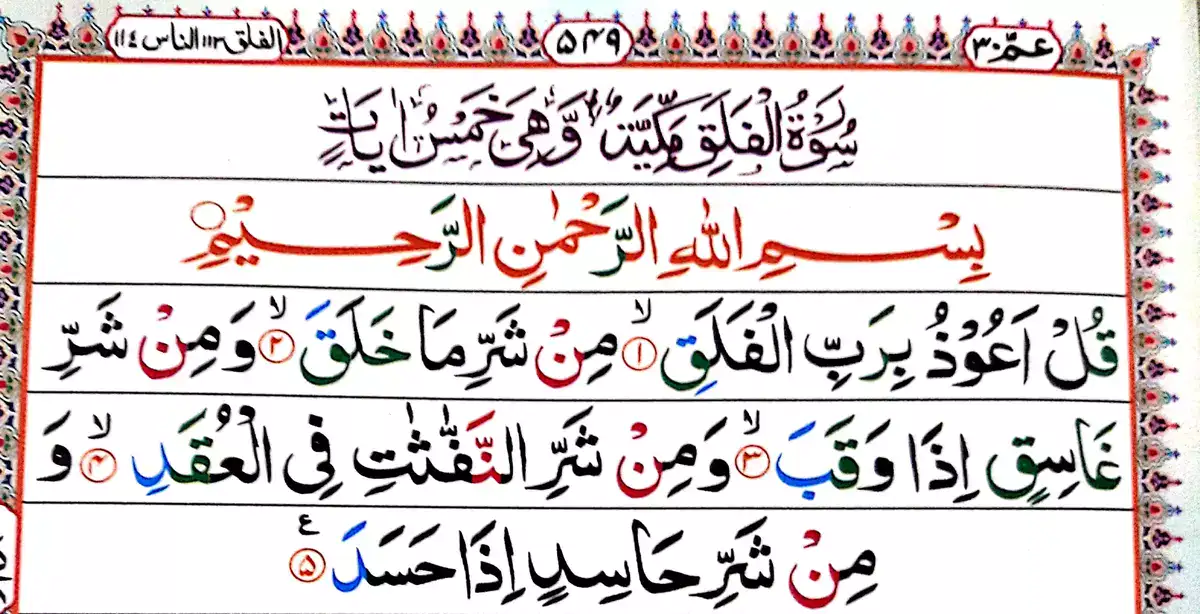 عمّ ٣٠ ۵۴۹ الفلق ١١٣ الناس ١١٤
سُوۡرَةُ الۡفَلَقِ مَكِّيَّةٌ وَّهِىَ خَمۡسُ اٰيَاتٍ
بِسۡمِ اللّٰهِ الرَّحۡمٰنِ الرَّحِيۡمِ
قُلۡ اَعُوۡذُ بِرَبِّ الۡفَلَقِۙ‏ ﴿۱﴾ مِنۡ شَرِّ مَا خَلَقَۙ‏ ﴿۲﴾ وَمِنۡ شَرِّ
غَاسِقٍ اِذَا وَقَبَۙ‏ ﴿۳﴾ وَمِنۡ شَرِّ النَّفّٰثٰتِ فِى الۡعُقَدِۙ‏ ﴿۴﴾ وَ
مِنۡ شَرِّ حَاسِدٍ اِذَا حَسَدَ ﴿۵﴾ ع